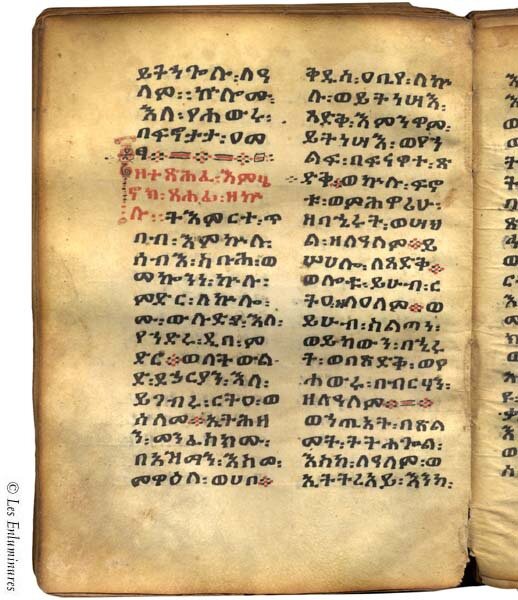 ይትኀጐሉ፡ለዓ
ለም፡፡ኵሎሙ፡
እለ፡የሐውሩ፡
በፍኖታተ፡ዐመ
ፃ
ዘተጽሕፈ፡እምሄ
ኖክ፡ጸሐፊ፡ዘኵ
ሉ፡፡ትእምርተ፡ጥ
በብ፡እምኵሉ፡
ሰብእ፡ክቡሕ፡ወ
መኰንነ፡ኵሉ፡
ምድር፡ለኵሎ
ሙ፡ውሉድየ፡እለ፡
የኀድሩ፡ዲበ፡ም
ድር፨ወለትውል
ድ፡ደኃርያን፡እለ፡
ይገብሩ፡ርትዐ፡ወ
ሰላመ፨ኢትሕዝ
ን፡መንፈስክሙ፡
በእዝማን፡እስመ፡
መዋዕለ፡ወሀቦ፨
ቅዱስ፡ዐቢየ፡ለኵ
ሉ፡ወይትነሣእ፡
ጻድቅ፡እምንዋም፡
ይትነሣእ፡ወየኀ
ልፍ፡በፍናዋተ፡ጽ
ድቅ፨ወኵሉ፡ፍኖ
ቱ፡ወምሕዋሪሁ፡
ዘበኂሩት፡ወሣህ
ል፡ዘለዓለም፨ይ
ሣሀሎ፡ለጻድቅ፨
ወሎቱ፡ይሁብ፡ር
ትዐ፡ዘለዓለም፨ወ
ይሁብ፡ስልጣነ፡
ወይከውን፡በኂሩ
ት፡ወበጽድቅ፡ወየ
ሐውሩ፡በብርሃን፡
ዘለዓለም፨
ወኀጢአት፡በጽል
መት፡ትትሐጐል፡
እስከ፡ለዓለም፡ወ
ኢትትረአይ፡እንከ፡
© Les Enluminures